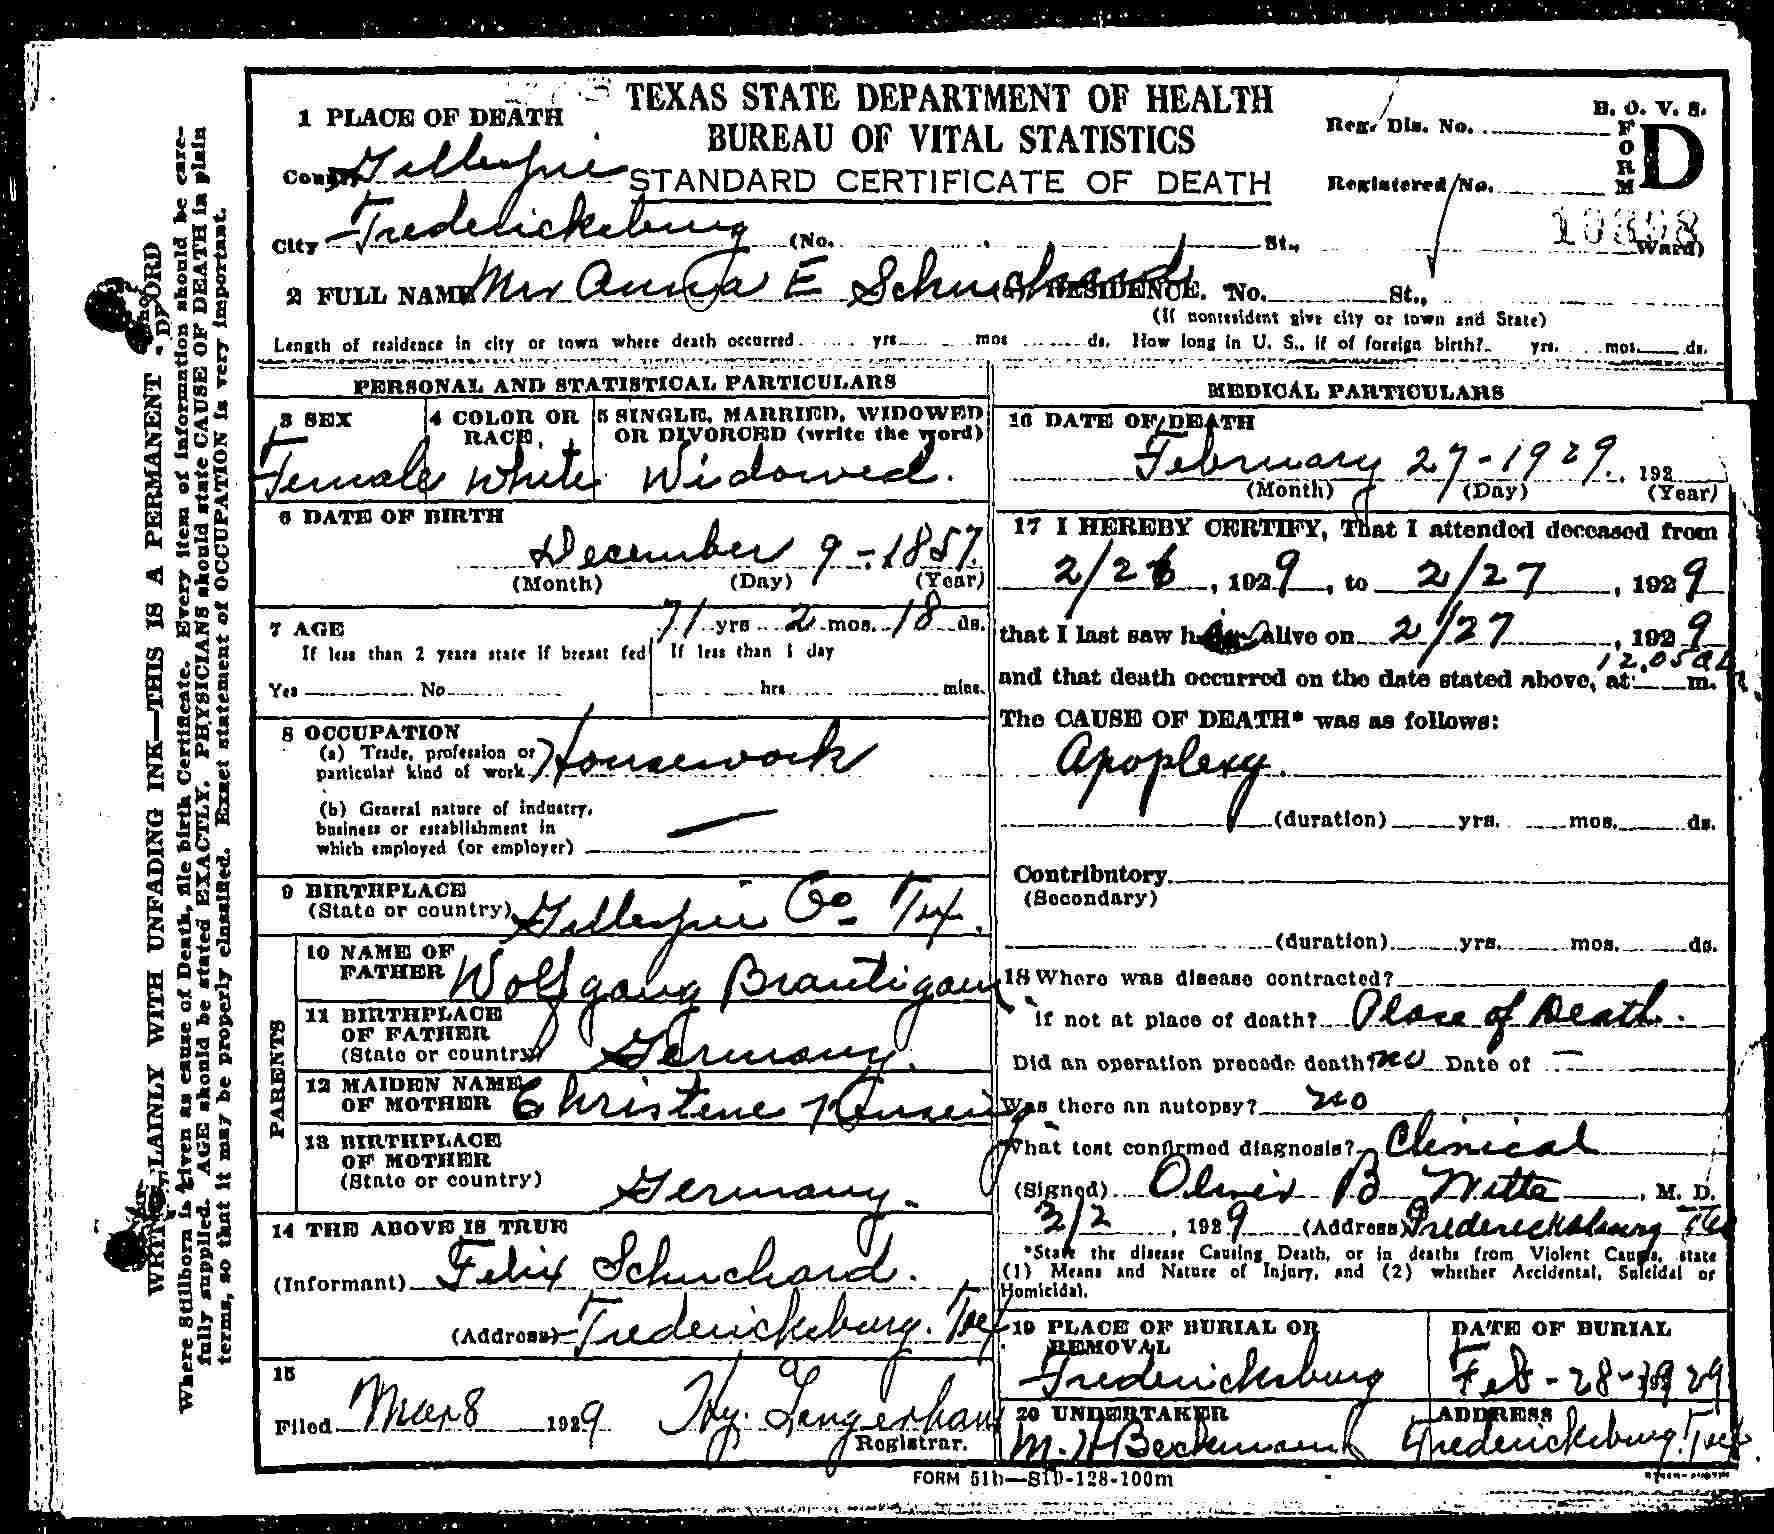 TEXAS STATE DEPARTMENT OF HEALTH
BUREAU OF VITAL STATISTICS
STANDARD CERTIFICATE OF DEATH
B. O. V. S.
FORM D
Reg. Dis. No.
Registered No.
1 PLACE OF DEATH
County Gillespie
City Fredericksburg (No. St., Ward)
2 FULL NAME Mrs Anna E Schuchard RESIDENCE. No. St.,
(If nonresident give city or town and State)
Length of residence in city or town where death occurred yrs. mos ds. How long in U. S., if of foreign birth? yrs. mos. ds.
PERSONAL AND STATISTICAL PARTICULARS
3 SEX
Female
4 COLOR OR RACE,
White
5 SINGLE, MARRIED, WIDOWED
OR DIVORCED (write the word)
Widowed.
6 DATE OF BIRTH
December 9-1857.
(Month) (Day) (Year)
7 AGE 71 yrs 2 mos. 18 ds.
If less than 2 years state if breast fed
Yes No
If less than 1 day
hrs mins.
8 OCCUPATION
(a) Trade, profession or
particular kind of work Housework
(b) General nature of industry,
business or establishment in
which employed (or employer) —
9 BIRTHPLACE
(State or country) Gillespie Co Tex.
PARENTS
10 NAME OF
FATHER Wolfgang Brautigam
11 BIRTHPLACE
OF FATHER
(State or country) Germany.
12 MAIDEN NAME
OF MOTHER Christene
13 BIRTHPLACE
OF MOTHER
(State or country) Germany.
14 THE ABOVE IS TRUE
(Informant) Felix Schuchard.
(Address) Fredericksburg. Tex
15
Filed Mar 8 1929 Hy. Langerhans
Registrar.
MEDICAL PARTICULARS
16 DATE OF DEATH
February 27-1929. 192
(Month) (Day) (Year)
17 I HEREBY CERTIFY, That I attended deceased from
2/26, 1929, to 2/27, 1929
that I last saw h alive on 2/27, 1929
and that death occurred on the date stated above, at 12.05 a m.
The CAUSE OF DEATH* was as follows:
Apoplexy.
(duration) yrs. mos. ds.
Contributory
(Secondary)
(duration) yrs. mos. ds.
18 Where was disease contracted?
if not at place of death? Place of Death.
Did an operation precede death? no Date of —
Was there an autopsy? no
What test confirmed diagnosis? Clinical
(Signed) Oliver B Witte, M. D.
3/2, 1929 (Address) Fredericksburg Tex
*State the disease Causing Death, or in deaths from Violent Causes, state
(1) Means and Nature of Injury, and (2) whether Accidental, Suicidal or
Homicidal.
19 PLACE OF BURIAL OR
REMOVAL
Fredericksburg
DATE OF BURIAL
Feb-28-1929
20 UNDERTAKER
M. H Beckmann
ADDRESS
Fredericksburg. Tex
FORM 51b—S1D-128-100m
WRITE PLAINLY WITH UNFADING INK—THIS IS A PERMANENT RECORD
Where Stillborn is given as cause of Death, file birth Certificate. Every item of information should be care-
fully supplied. AGE should be stated EXACTLY. PHYSICIANS should state CAUSE OF DEATH in plain
terms, so that it may be properly classified. Exact statement of OCCUPATION is very important.